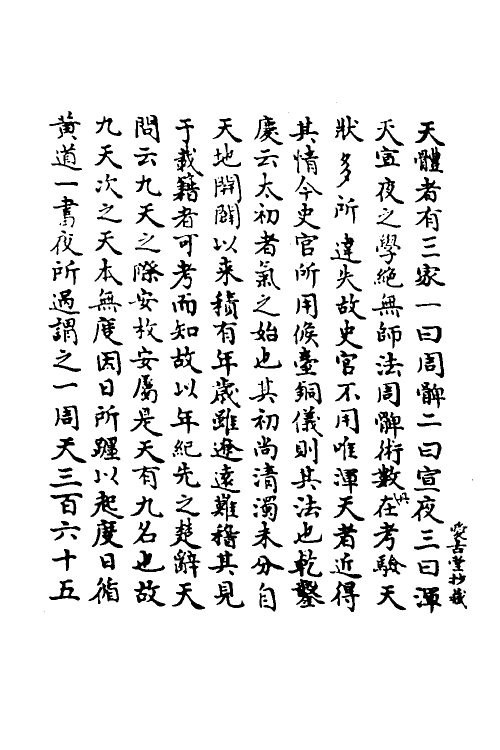 天體者有三家一曰周髀二曰宣夜三曰渾
天宣夜之學絶無師法周髀術數在考驗天
狀多所違失故史官不用唯渾天者近得
其情今史官所用候臺銅儀則其法也乾鑿
度云太初者氣之始也其初尚清濁未分自
天地開闢以来積有年歳雖遼遠難稽其見
于載籍者可考而知故以年紀先之楚辭天
問云九天之際安放安屬是天有九名也故
九天次之天本無度因日所躔以起度日循
黄道一晝夜所過謂之一周天三百六十五
古堂抄藏